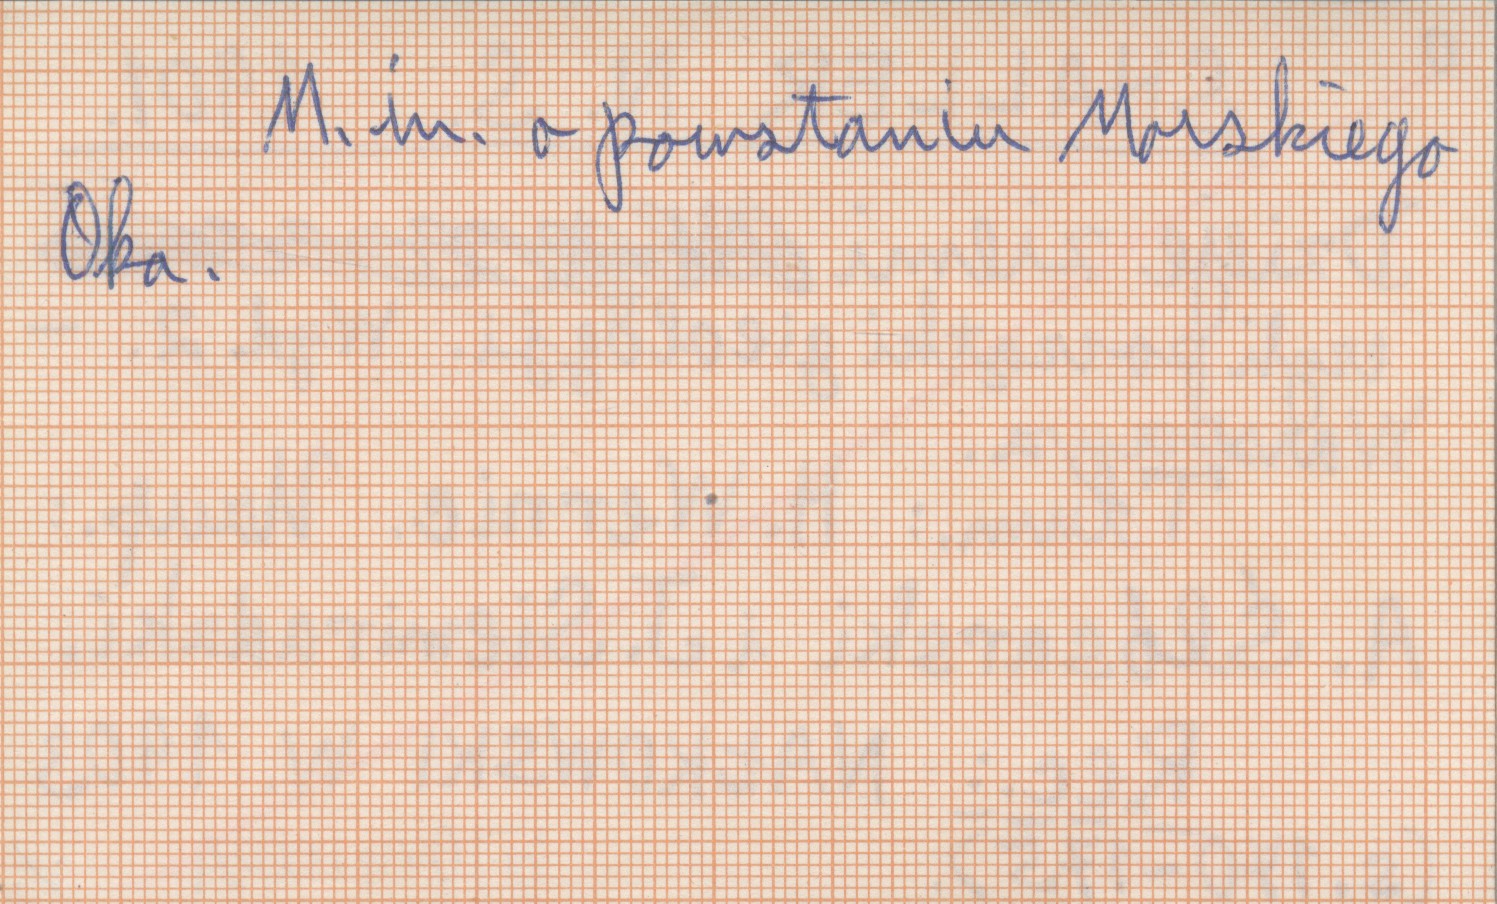 M. in. o powstaniu Morskiego
Oka.